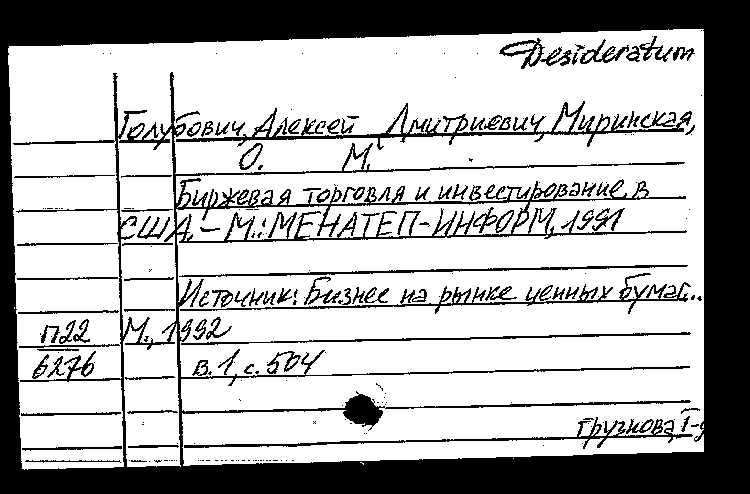 Desideratum
Голубович, Алексей Дмитриевич, Миринская,
О. М.
Биржевая торговля и инвестирование в
США. – М.: МЕНАТЕП-ИНФОРМ, 1991
Источник: Бизнес на рынке ценных бумаг..
П22 М., 1992
6276 в. 1, с. 504
Грузнова, I-